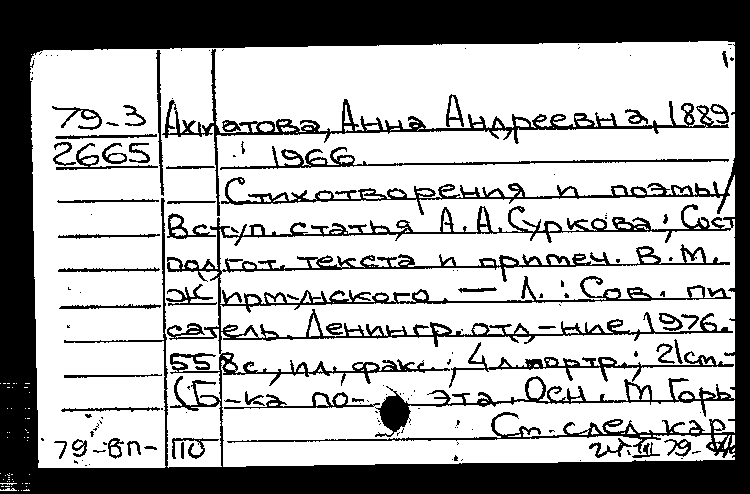 79-3 Ахматова, Анна Андреевна, 1889-
2665 1966.
Стихотворения и поэмы/
Вступ. статья А.А.Суркова; Сост
подгот. текста и примеч. В.М.
Жирмунского. — Л.: Сов. пи-
сатель. Ленингр. отд-ние, 1976.-
558с., ил., факс.; 4л.портр.; 21см.-
(Б-ка по-эта. Осн. М.Горь-
См. след. кар-
79-вп- ПО 24.III 79-